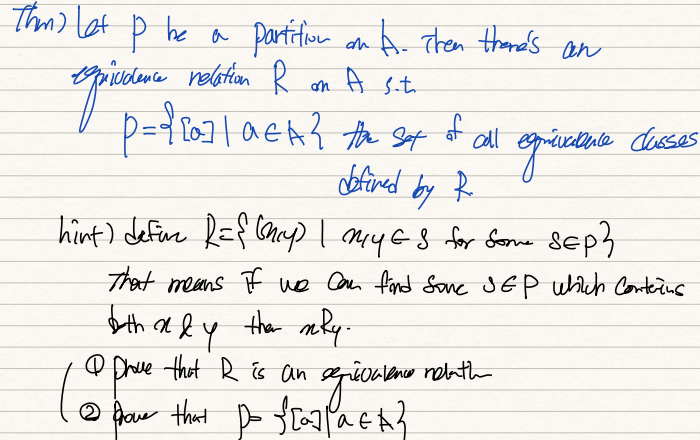 Thm) Let P be a partition on A. Then there's an
equivalence relation R on A s.t.
P={[a] | a∈A} the set of all equivalence classes
defined by R.
hint) define R={(x,y) | x,y∈S for some S∈P}
That means if we can find some S∈P which contains
both x & y then xRy.
① Prove that R is an equivalence relation
② Prove that P= {[a] | a∈A}